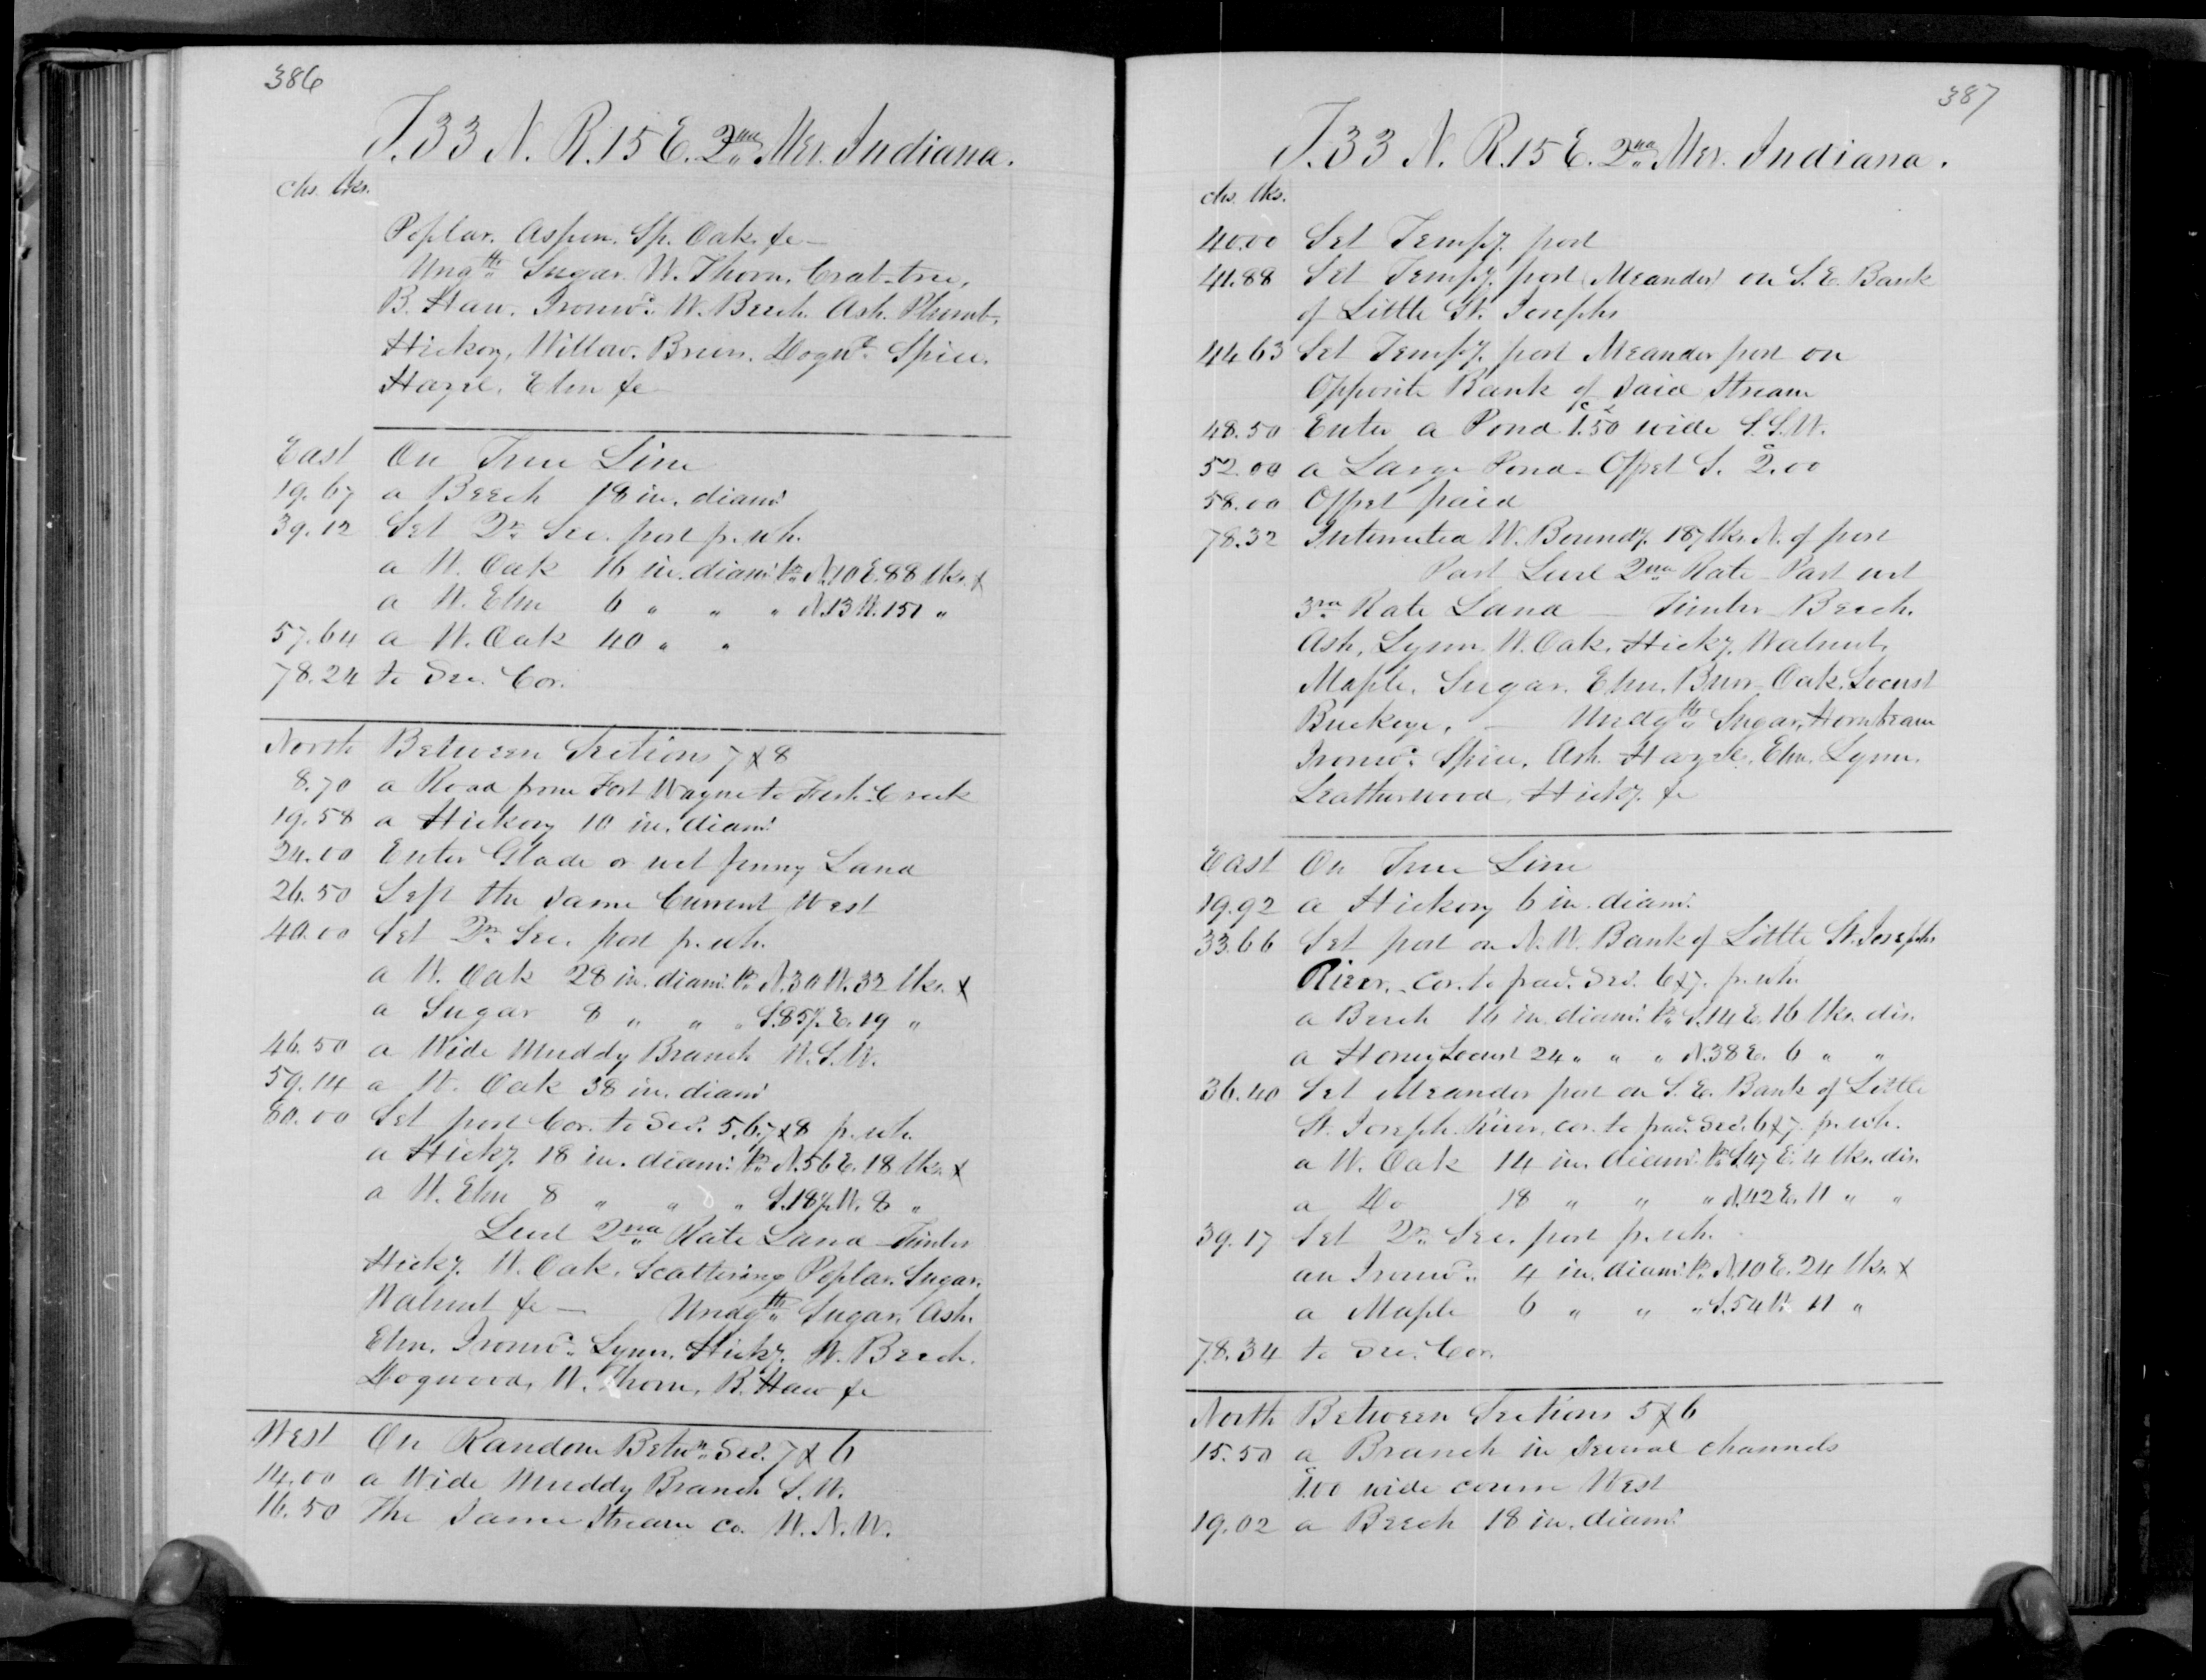 386
T. 33 N. R. 15 E. 2nd Mer. Indiana.
chs. lks.
Poplar. Aspen. Sp. Oak. &c —
Ungth Sugar. W. Thorn. Crab-tree,
B. Haw. Ironwd. W. Beech. Ash. Plumb.
Hickory, Willow. Briers. Dogwd. Spice.
Hazel. Elm &c —
East On True Line
19.67 a Beech 18 in. diamr.
39.12 Set Qr. Sec. post f. wh.
a W. Oak 16 in. diamr. br. N. 10 E. 88 lks. &
a W. Elm 6 " " " N. 13 W. 151 "
57.64 a W. Oak 40 " "
78.24 to Sec. Cor.
North Between Sections 7 & 8
8.70 a Road from Fort Wayne to Fish Creek
19.58 a Hickory 10 in. diamr.
24.00 Enter Glade or wet fenny Land
26.50 Left the same Current West
40.00 Set Qr. Sec. post f. wh.
a W. Oak 28 in. diamr. br. N. 30 W. 32 lks. &
a Sugar 8 " " " S. 85½ E. 19 "
46.50 a Wide Muddy Branch W.S.W.
59.14 a W. Oak 38 in. diamr.
80.00 Set post Cor. to Secs. 5, 6, 7 & 8 f. wh.
a Hicky. 18 in. diamr. br. N. 56 E. 18 lks. &
a W. Elm 8 " " " S. 18½ W. 8 "
Level 2nd Rate Land — Timber
Hicky. W. Oak. Scattering Poplar. Sugar.
Walnut &c — Undgth Sugar, Ash.
Elm. Ironwd. Lynn. Hicky. W. Beech.
Dogwood, W. Thorn, B. Haw &c
West On Random Betwn. Secs. 7 & 6
14.00 a Wide Muddy Branch S.W.
16.50 The Same Stream Co. W.N.W.
387
T. 33 N. R. 15 E. 2nd Mer. Indiana.
chs. lks.
40.00 Set Tempy. post
41.88 Set Tempy. post (Meander) on S.E. Bank
of Little St. Josephs
44.63 Set Tempy. post Meander post on
Opposite Bank of said Stream
48.50 Enter a Pond 1.50 wide S.S.W.
52.00 a Large Pond — Offset S. 2.00
58.00 Offset paid
78.32 Intersected W. Boundy. 187 lks. N. of post
Part Level 2nd Rate — Part wet
3rd Rate Land — Timber Beech.
Ash, Lynn. W. Oak. Hicky. Walnut.
Maple. Sugar. Elm. Burr Oak. Locust
Buckeye. — Undgth Sugar, Hornbeam
Ironwd. Spice. Ash. Hazel. Elm. Lynn.
Leatherwood, Hicky. &c
East On True Line
19.92 a Hickory 6 in. diamr.
33.66 Set post on N.W. Bank of Little St. Josephs
River. Cor. to fracl. Secs. 6 & 7. f. wh.
a Beech 16 in. diamr. br. S. 14 E. 16 lks. dis.
a Honey Locust 24 " " " N. 38 E. 6 " "
36.40 Set Meander post on S.E. Bank of Little
St. Joseph River, cor. to fracl. Secs. 6 & 7. f. wh.
a W. Oak 14 in. diamr. br. S. 47 E. 4 lks. dis.
a Do 18 " " " N. 42 E. 11 " "
39.17 Set Qr. Sec. post f. wh.
an Ironwd. 4 in. diamr. br. N. 10 E. 24 lks. &
a Maple 6 " " " S. 54 W. 11 "
78.34 to Sec. Cor.
North Between Sections 5 & 6
15.50 a Branch in several channels
1.00 wide course West
19.02 a Beech 18 in. diamr.